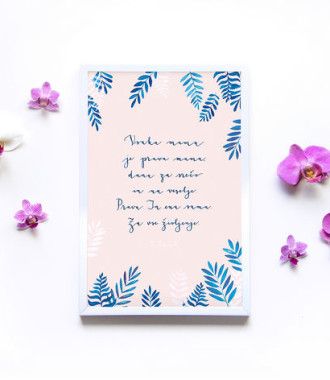 Vsaka mama
je prava mama,
dana za srečo
in na veselje.
Prava. In ena sama.
Za vse življenje.